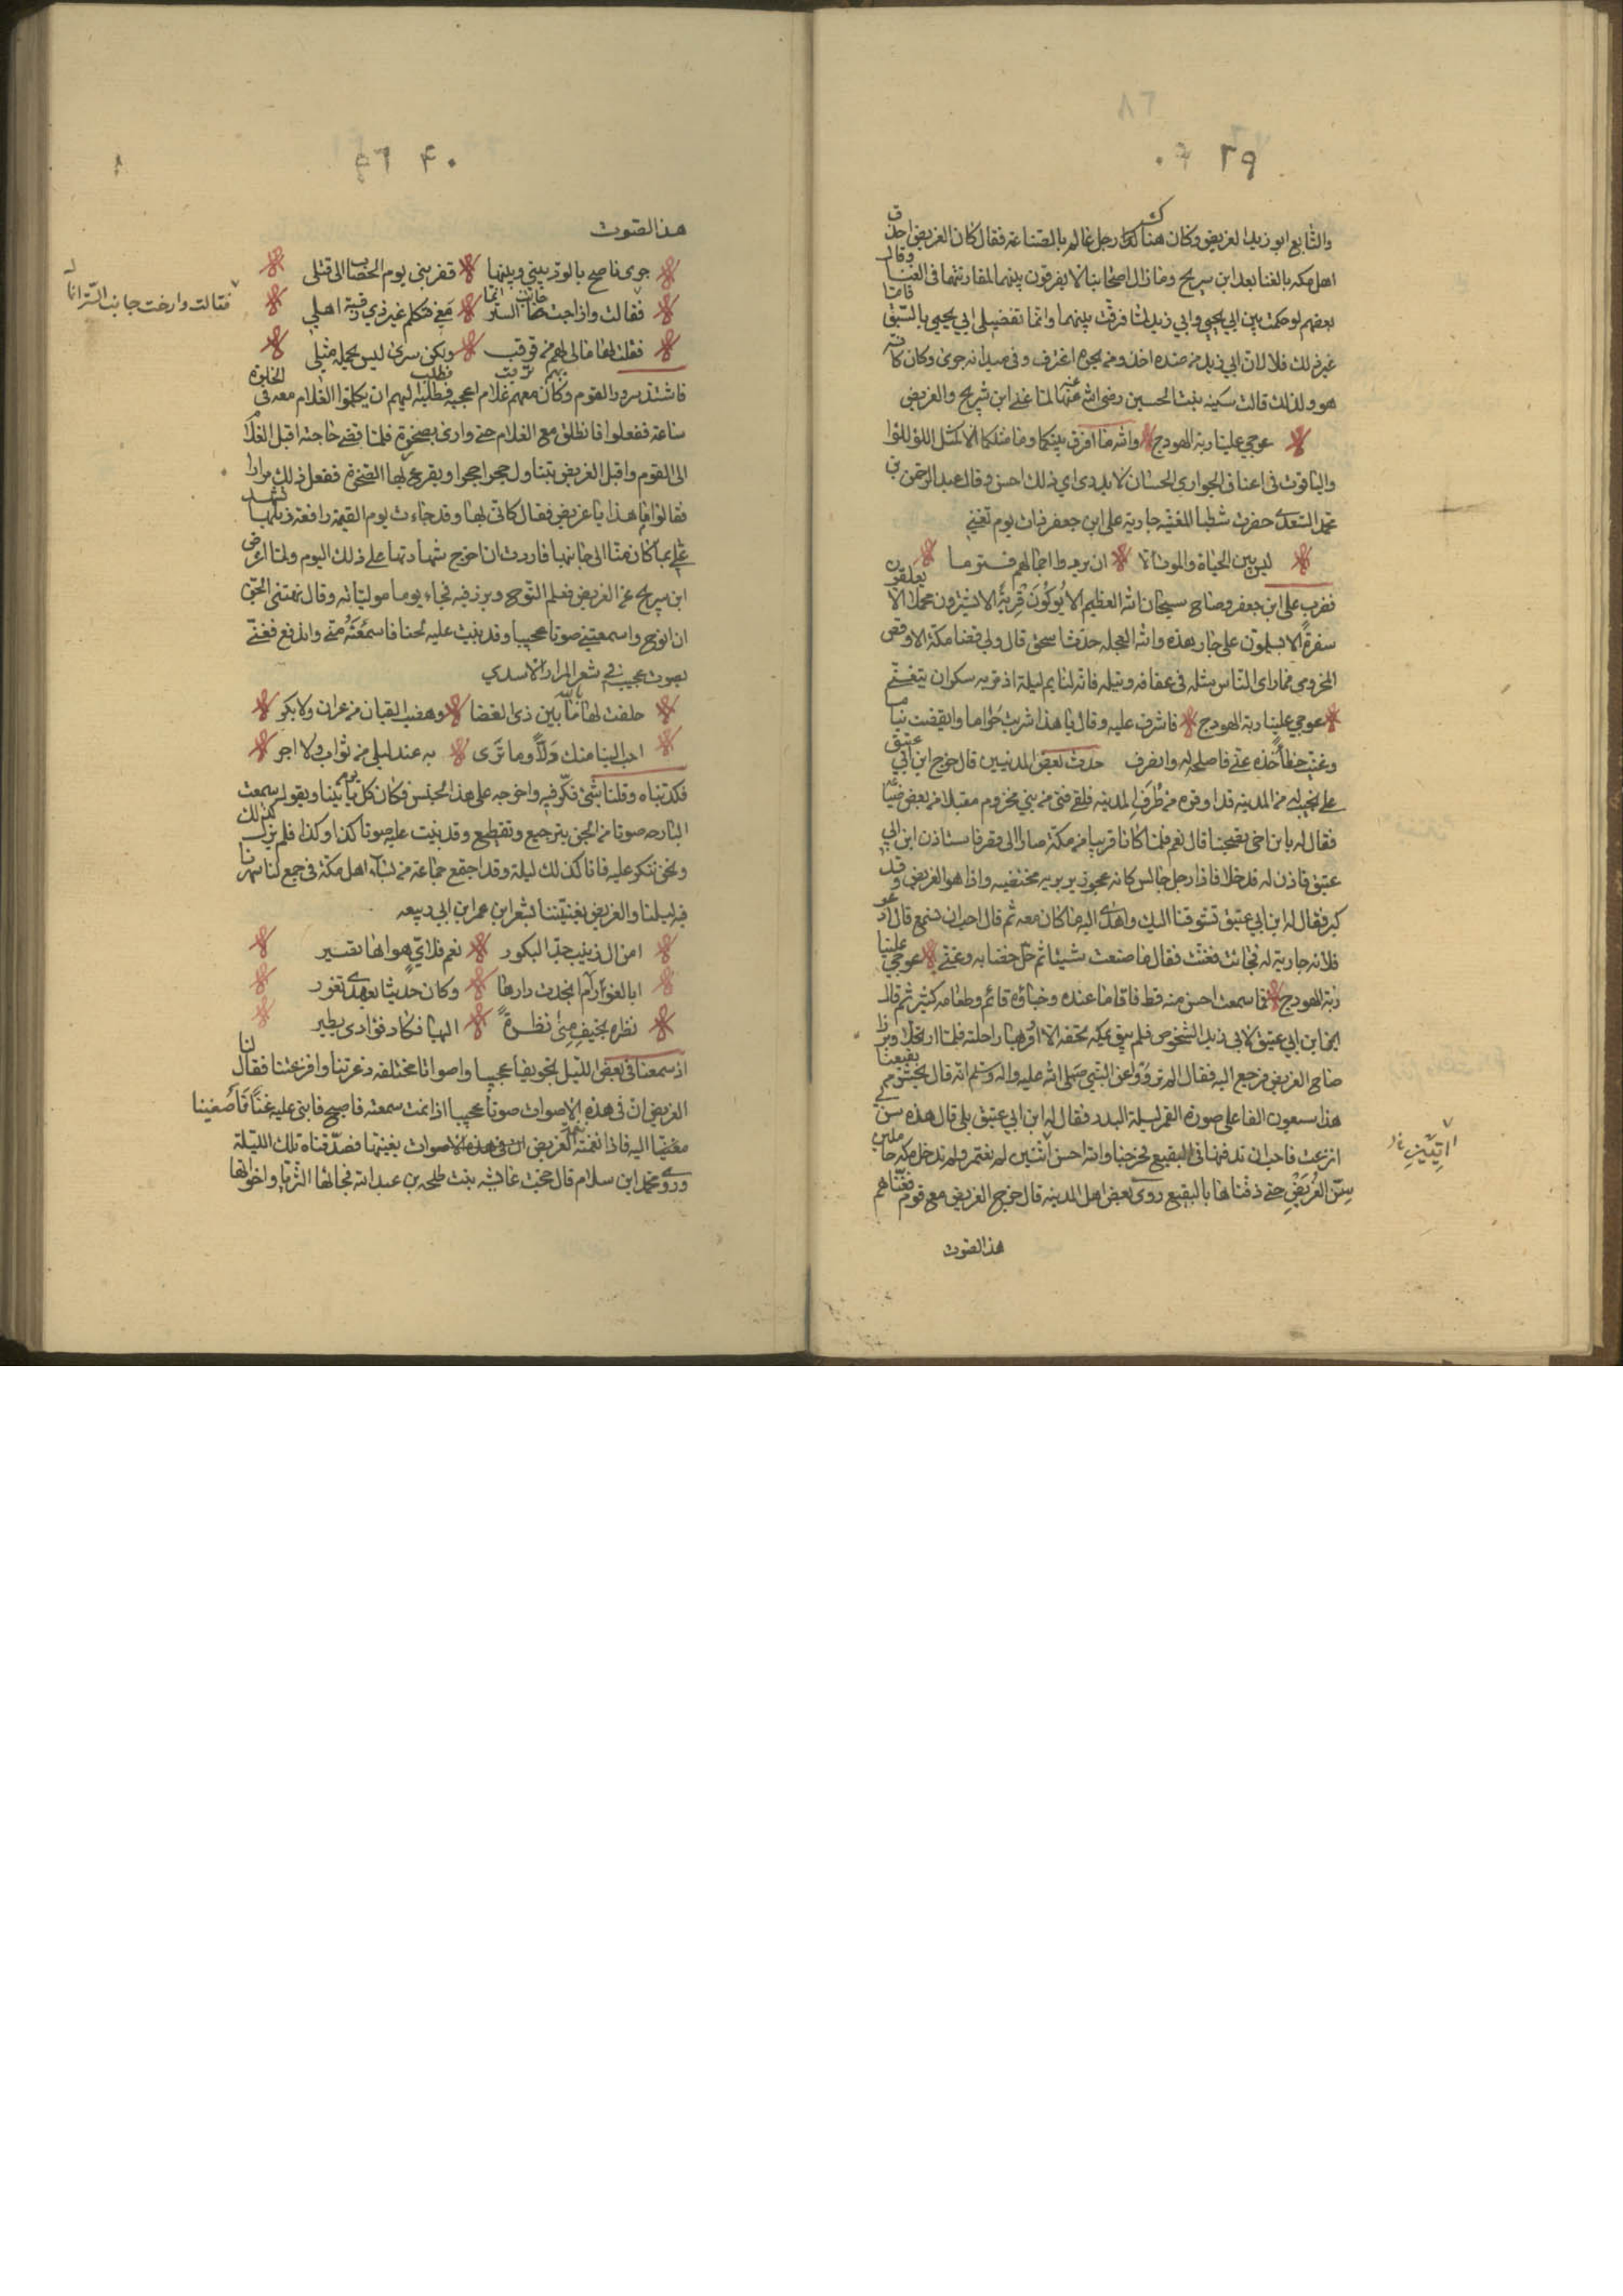 ٣٩
والتابع ابو زيد الغريض وكان هناك رجل عالم بالصناعة فقال كان الغريض احذق
اهل مكه بالغنا بعد ابن سريج وما زال اصحابنا لا يفرقون بينهما لمقاربتهما فى الغنا وقال
بعضهم لو حكمت بين ابي يحيى وابي زيد لما فرقت بينهما وانما تفضيلى ابي يحيى بالسبق فامّا
غير ذلك فلا لان ابي زيد من عنده اخذ ومن بحره اغترف وفى ميدانه جرى وكان كانه
هو ولذلك قالت سكينه بنت الحسين رضى الله عنها لما غنى ابن سريج والغريض
عوجي علينا ربة الهودج والله ما افرق بينكما وما مثلكما الا كمثل اللؤلؤ
والياقوت فى اعناق الجوارى الحسان لا يدرى اي ذلك احسن وقال عبد الرحمن بن
محمد السعدى حضرت شطبا المغنيه جارية على ابن جعفر ذات يوم تغنى
ليس بين الحياة والموت الا ان يردوا جمالهم فتزما
فضرب على ابن جعفر وصاح سبحان الله العظيم الا يوكون قربة الا يشدون محملا الا يعلقون
سفرة الا يسلمون على جار هذه والله العجله حدث اسحق قال ولي قضا مكة الاوقص
المخزومى فما راى الناس مثله فى عفافه ونبله فانه لنايم ليلة اذ مر به سكران يتغنى
عوجي علينا ربة الهودج فاشرف عليه وقال يا هذا شربت حراما وايقضت نياما
وغنيت خطا خذه عنى فاصلحه له وانصرف حدث بعض المدنيين قال خرج ابن ابي عتيق
على نجيب له من المدينه قد اوقره من طرف المدينه فلقى فتى من بني مخزوم مقبلا من بعض ضياعه
فقال له يا بن اخى تصحبنا قال نعم فلما كانا قريبا من مكة صارا الى قصر فاستاذن ابن ابي
عتيق فاذن له فدخلا فاذا رجل جالس كانه عجوز بربريه مختضبه واذا هو الغريض وقد
كبر فقال له ابن ابي عتيق تشوقنا اليك واهدى اليه ما كان معه ثم قال احب ان نسمع قال ادعو
فلانه جارية له فجائت فغنت فقال ما صنعت شيئا ثم حل خضابه وغنى عوجي علينا
ربة الهودج فما سمعت احسن منه قط فاقاما عنده وخباؤه قائم وطعامه كثير ثم قال
صاح الغريض فرجع اليه فقال الم ترووا عن النبي صلى الله عليه واله وسلم انه قال يحشر من بقيعنا
هذا سبعون الفا على صورة القمر ليلة البدر فقال له ابن ابي عتيق بلى قال هذه سن لي
انزعت فاحب ان تدفنها فى البقيع فخرجنا والله احسن اثنين لم نعتمر ولم ندخل مكه حاملين
سن الغريض حتى دفناها بالبقيع روى بعض اهل المدينه قال خرج الغريض مع قوم فغناهم
هذا الصوت
٤٠
هذا الصوت
جرى ناصح بالود بينى وبينها فقربنى يوم الحصاب الى قتلى
فقالت وارخت جانب الستر انما معى فتكلم غير ذي رقبة اهلي
فقالت وارخت جانب الستر انما
فقلت لها ما لى لهم من ترقب ولكن سرى ليس يحمله مثلي
فاشتد سرور القوم وكان معهم غلام اعجبه فطلب اليهم ان يكلموا الغلام معه فى الخلوة
ساعة ففعلوا فانطلق مع الغلام حتى وارى بصخرة فلما قضى حاجته اقبل الغلام
الى القوم واقبل الغريض يتناول حجرا حجرا ويقرع بها الصخرة ففعل ذلك مرارا
فقالوا ما هذا يا غريض فقال كانى بها وقد جاءت يوم القيمه رافعة ذيلها تشهد
علي بما كان منا الى جانبها فاردت ان اجرح شهادتها على ذلك اليوم ولما اعرض
ابن سريج عن الغريض فعلم النوح وبرز فيه فجاء يوما مولياته وقال نهتنى الجن
ان انوح واسمعتنى صوتا عجيبا وقد بنيت عليه لحنا فاسمعنه منى واندفع فغنى
بصوت عجيب فى شعر المرار الاسدي
حلفت لها بالله ما بين ذى الغضا وهضب القيان من عوان ولا بكر
احب الينا منك دلا وما نرى به عند ليلى من ثواب ولا اجر
فكذبناه وقلنا شئ فكر فيه واخرجه على هذا الجنس فكان كل يوم ياتينا ويقول سمعت
البارحه صوتا من الجن بترجيع وتقطيع وقد بنيت عليه صوتا كذا وكذا فلم يزل كذلك
ونحن ننكر عليه فانا كذلك ليلة وقد اجتمع جماعة من نساء اهل مكة فى جمع لنا سهرنا
فيه ليلنا والغريض يغنينا بشعر ابن عمر ابن ابي ربيعه
امن ال زينب جد البكور نعم فلاي هواها تصير
ابالغور ام انجدت دارها وكان حديثا بعهدى تغور
نظرت بخيف منى نظرة اليها فكاد فؤادى يطير
اذ سمعنا فى بعض الليل تحريفا عجيبا واصواتا مختلفه ذعرتنا وافزعتنا فقال لنا
الغريض ان فى هذه الاصوات صوتا عجيبا اذا نمت سمعته فاصبح فابنى عليه غنائى فاصغينا
معنا اليه فاذا نغمته نغمة الغريض فصدقناه تلك الليلة
وروى محمد ابن سلام قال حجت عائشه بنت طلحه بن عبد الله فجائتها الثريا واخواتها